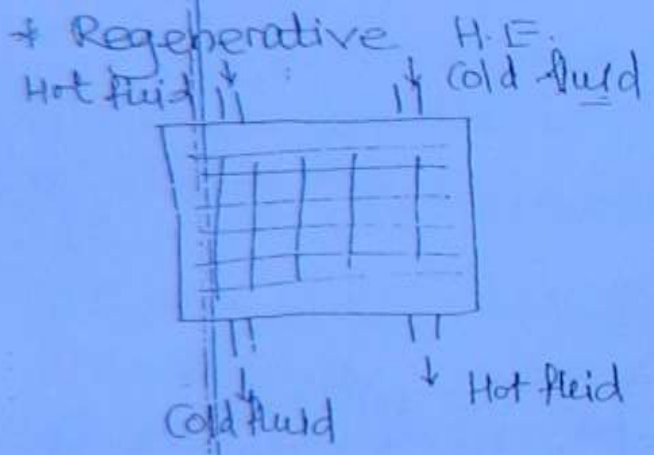 * Regenerative H.E.
Hot fluid
Cold fluid
Cold fluid
Hot fleid